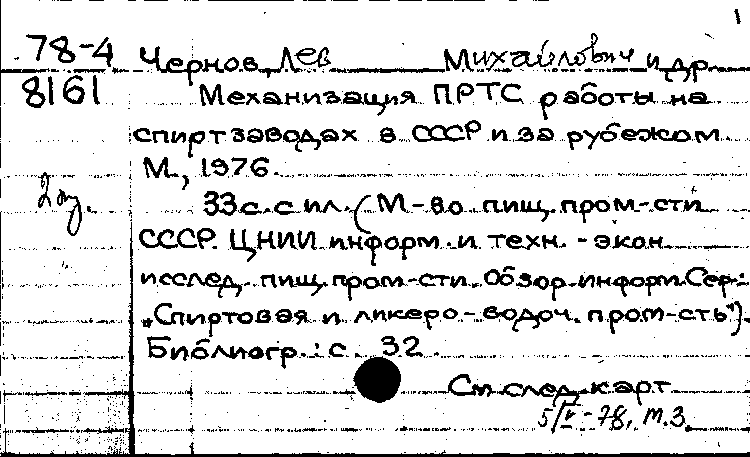 1
78-4 Чернов, Лев Михайлович и др.
8161 Механизация ПРТС работы на
спиртзаводах в СССР и за рубежом
М., 1976.
2 эк.
33 с. с ил. (М-во пищ. пром-сти
СССР. ЦНИИ информ. и техн.-экон.
исслед. пищ. пром-сти. Обзор. информ. Сер.:
„Спиртовая и ликеро-водоч. пром-сть").
Библиогр.: с. 32.
См след. карт.
5/V-78, м.з.